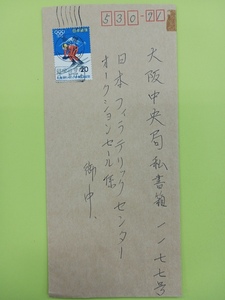 530-91
大阪中央局私書箱一一七七号
日本フィラテリックセンター
オークションセール係
御中
日本郵便
20